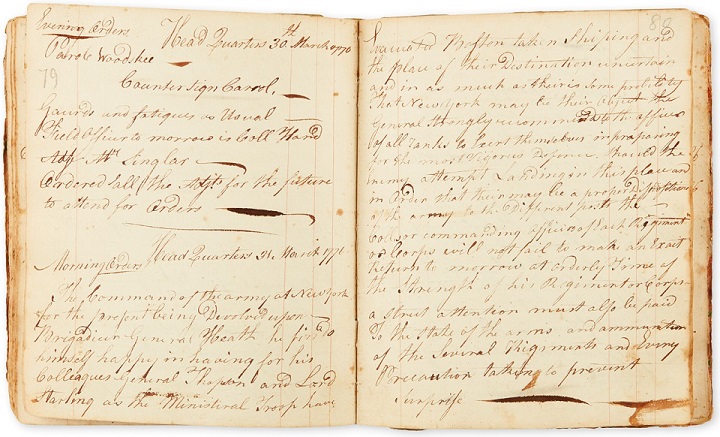 Evening Orders
Head Quarters 30th March 1776
Parole
79
Countersign Carrol
Gaurds and fatigues as Usual
Field Officer to morrow is Coll Hand
Adjt Mr
Ordered all the Adjts for the future
to attend for Orders
Head Quarters 31 March 1776
Morning Orders
The Command of the army at New York
for the present being Devolved upon
Brigadier General Heath he finds
himself happy in having for his
Colleagues General and Lord
Starling as the Ministerial Troop have
Evacuated Boston taken Shiping and
the place of their Destination uncertain
and in as much as their is Some probility
That New York may be their Object the
General Strongly recommends to the officers
of all ranks to Exert themselves in preparing
for the most Vigorus Defence should the
enimy attempt Landing in this place and
in Order that their may be a proper
of the army to the Different posts the
or commanding officers of Each Regiment
or Corps will not fail to make an Exact
Return to morrow at orderly Time of
the Strength of his Regiment or Corps
a strict attention must also be paid
To the State of the arms and ammunition
of the Several Regiments and every
Precaution taken to prevent
Surprise